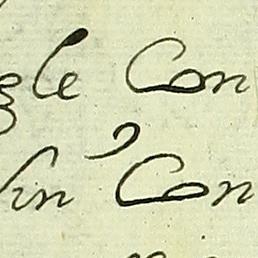 gle Con
in Con